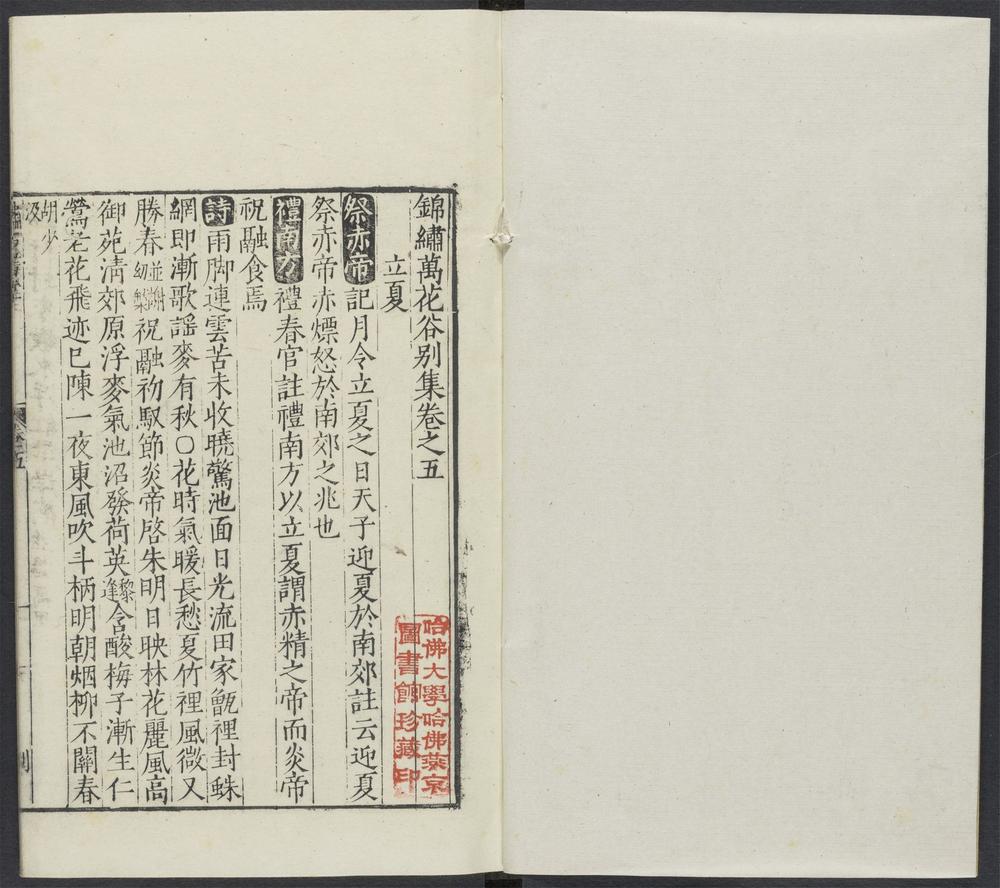 錦繡萬花谷别集卷之五
立夏
祭赤帝記月令立夏之日天子迎夏於南郊註云迎夏
祭赤帝赤熛怒於南郊之兆也
禮南方禮春官註禮南方以立夏謂赤精之帝而炎帝
祝融食焉
詩雨脚連雲苦未收曉驚池面日光流田家甑裡封蛛
網即漸歌謠麥有秋○花時氣暖長愁夏竹裡風微又
勝春並謝幼槃祝融初馭節炎帝啓朱明日映林花麗風高
御苑清郊原浮麥氣池沼發荷英黎逢含酸梅子漸生仁
鶯老花飛迹已陳一夜東風吹斗柄明朝烟柳不關春
胡少汲
卷五
一
哈佛大學哈佛燕京
圖書館珍藏印